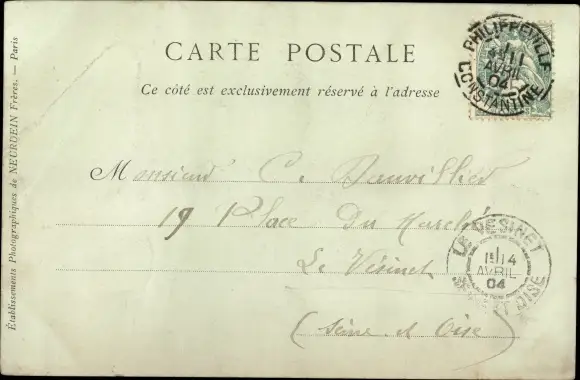 CARTE POSTALE
Ce côté est exclusivement réservé à l'adresse
PHILIPPEVILLE
11
AVRIL
04
CONSTANTINE
Monsieur C.
19 Place Du Marché
Le Vésinet
(Seine et Oise)
LE VESINET
14
AVRIL
04
SEINE ET OISE
Établissements Photographiques de NEURDEIN Frères. — Paris